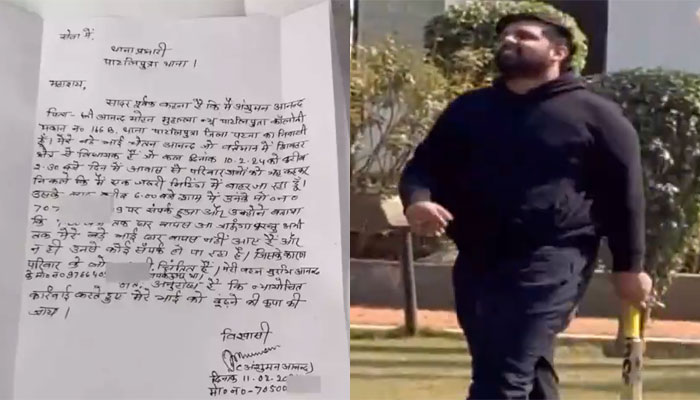 सेवा में,
थाना प्रभारी
पाटलिपुत्रा थाना।
महाशय,
सादर पूर्वक कहना है कि मैं अंशुमन आनन्द
पिता- श्री आनन्द मोहन मुहल्ला न्यू पाटलिपुत्रा कॉलोनी
मकान न० 166B, थाना पाटलिपुत्रा जिला पटना का निवासी
हूँ। मेरे बड़े भाई चेतन आनन्द जो वर्तमान में शिवहर
क्षेत्र से विधायक हैं जो कल दिनांक 10.2.24 को करीब
2.30 बजे दिन में आवास से परिवारजनों को यह कहकर
निकले कि मैं एक जरूरी मिटिंग में बाहर जा रहा हूँ।
उसके बाद करीब 6.00 बजे शाम में उनके मो०न०
707 9 पर संपर्क हुआ और उन्होंने बताया
कि तक घर वापस आ जाऊंगा परन्तु अभी
तक मेरे बड़े भाई घर वापस नहीं आए हैं और
न ही उनसे कोई संपर्क हो पा रहा है। जिसके कारण
परिवार के लोग चिंतित हैं। मेरी बहन सुरभि आनन्द
के मो०न० 9766405
अनुरोध है कि न्यायोचित
कार्रवाई करते हुए मेरे भाई को ढूंढने की कृपा की
जाय।
विश्वासी
(अंशुमन आनन्द)
दिनांक 11.02.20
मो०न०-70500